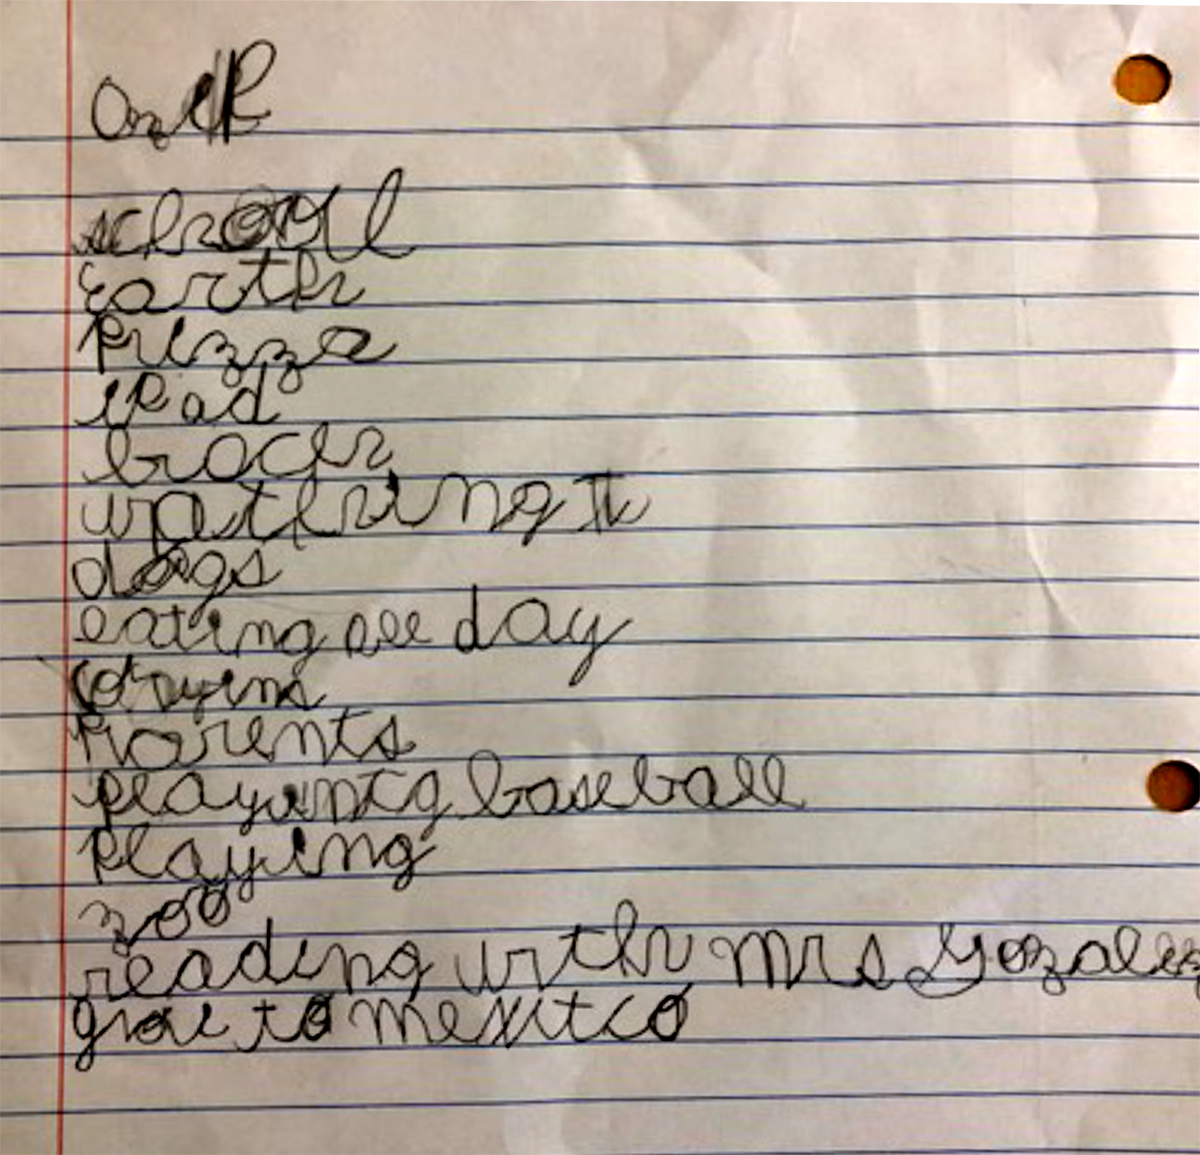 school
Earth
Pizza
iPad
bracth
wathing Tv
dogs
eating all day
Parents
playintg baseball
Playing
zoo
reading with Mrs Gozalez
goe to mexitco